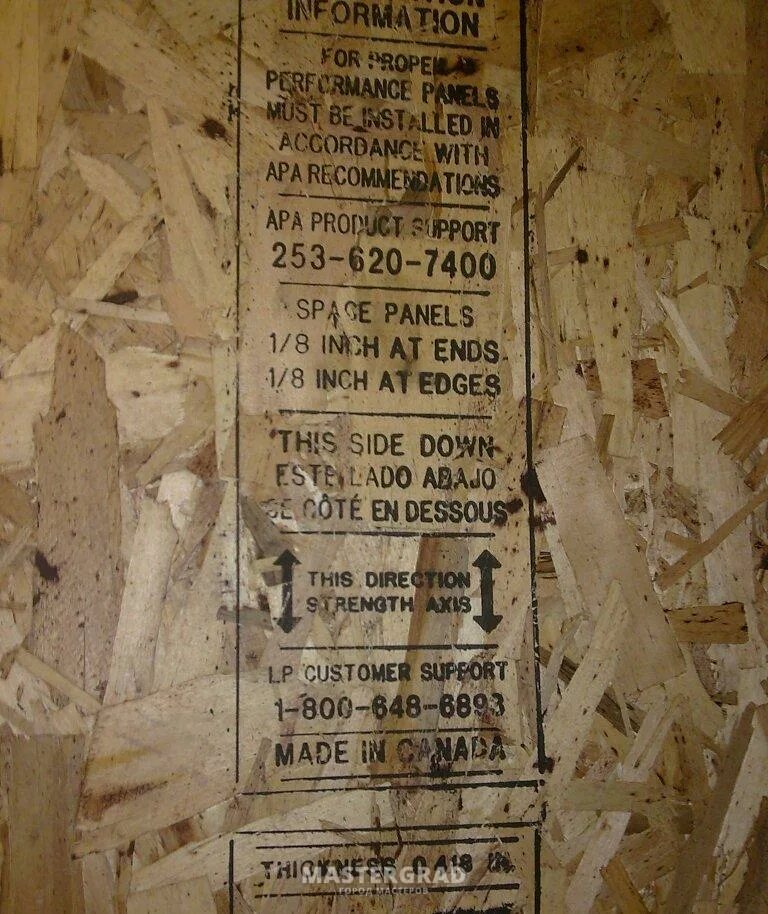 INFORMATION
FOR PROPER
PERFORMANCE PANELS
MUST BE INSTALLED IN
ACCORDANCE WITH
APA RECOMMENDATIONS
APA PRODUCT SUPPORT
253-620-7400
SPACE PANELS
1/8 INCH AT ENDS
1/8 INCH AT EDGES
THIS SIDE DOWN
ESTE LADO ABAJO
CE CÔTÉ EN DESSOUS
THIS DIRECTION
STRENGTH AXIS
LP CUSTOMER SUPPORT
1-800-648-6893
MADE IN CANADA
THICKNESS 0.418 IN.
MASTERGRAD
ГОРОД МАСТЕРОВ